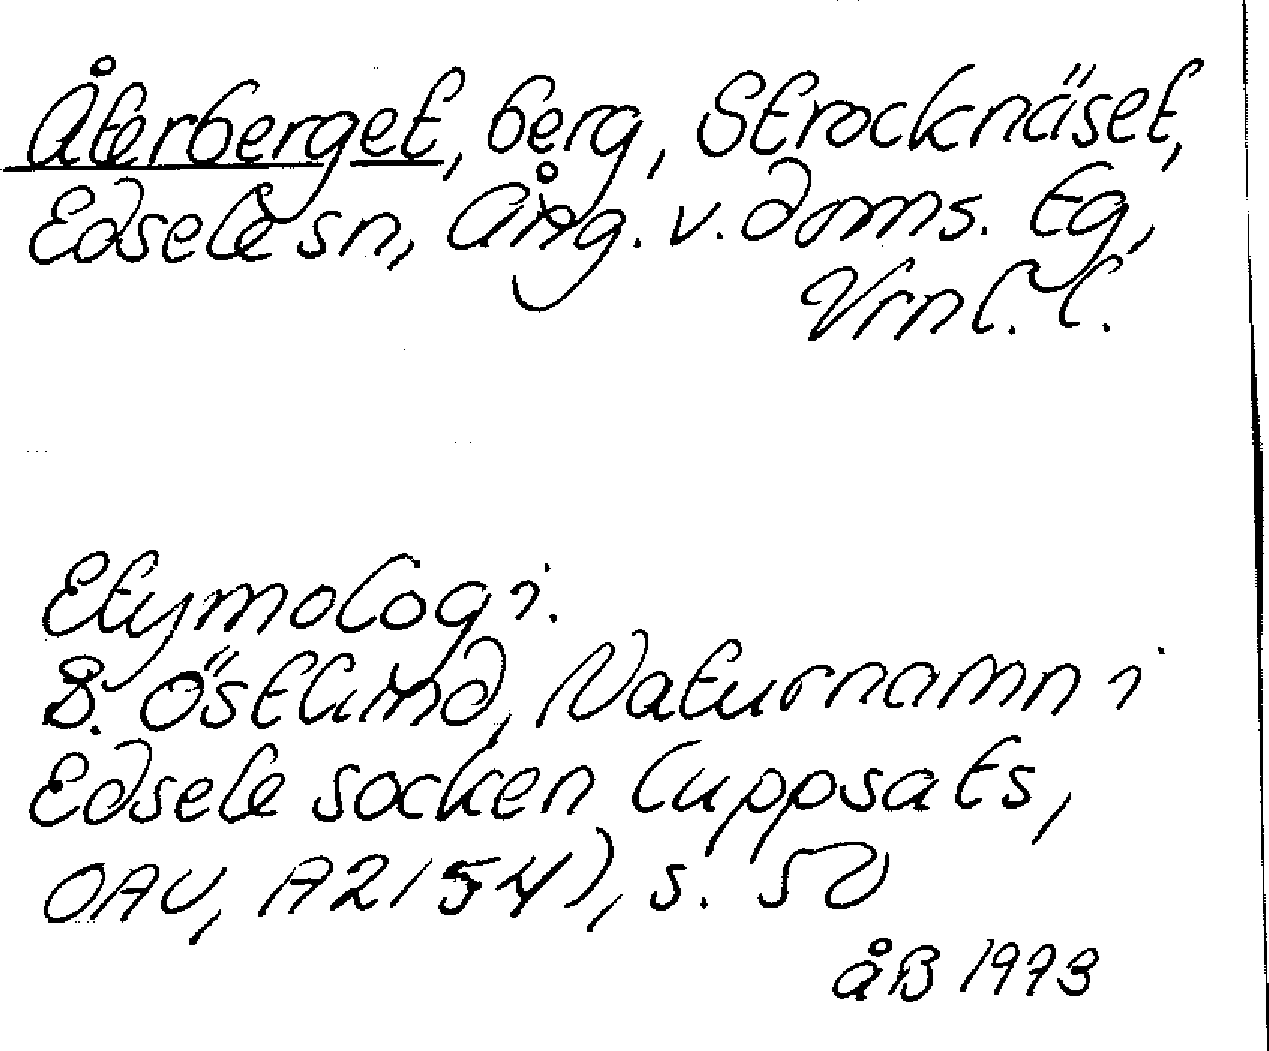 Återberget, berg, Strocknäset,
Edsele sn, Ång. v. doms. lg,
Vrnl. l.
Etymologi.
B. Östlund, Naturnamn i
Edsele socken (uppsats,
OAU, A2154), s. 50
åB 1973